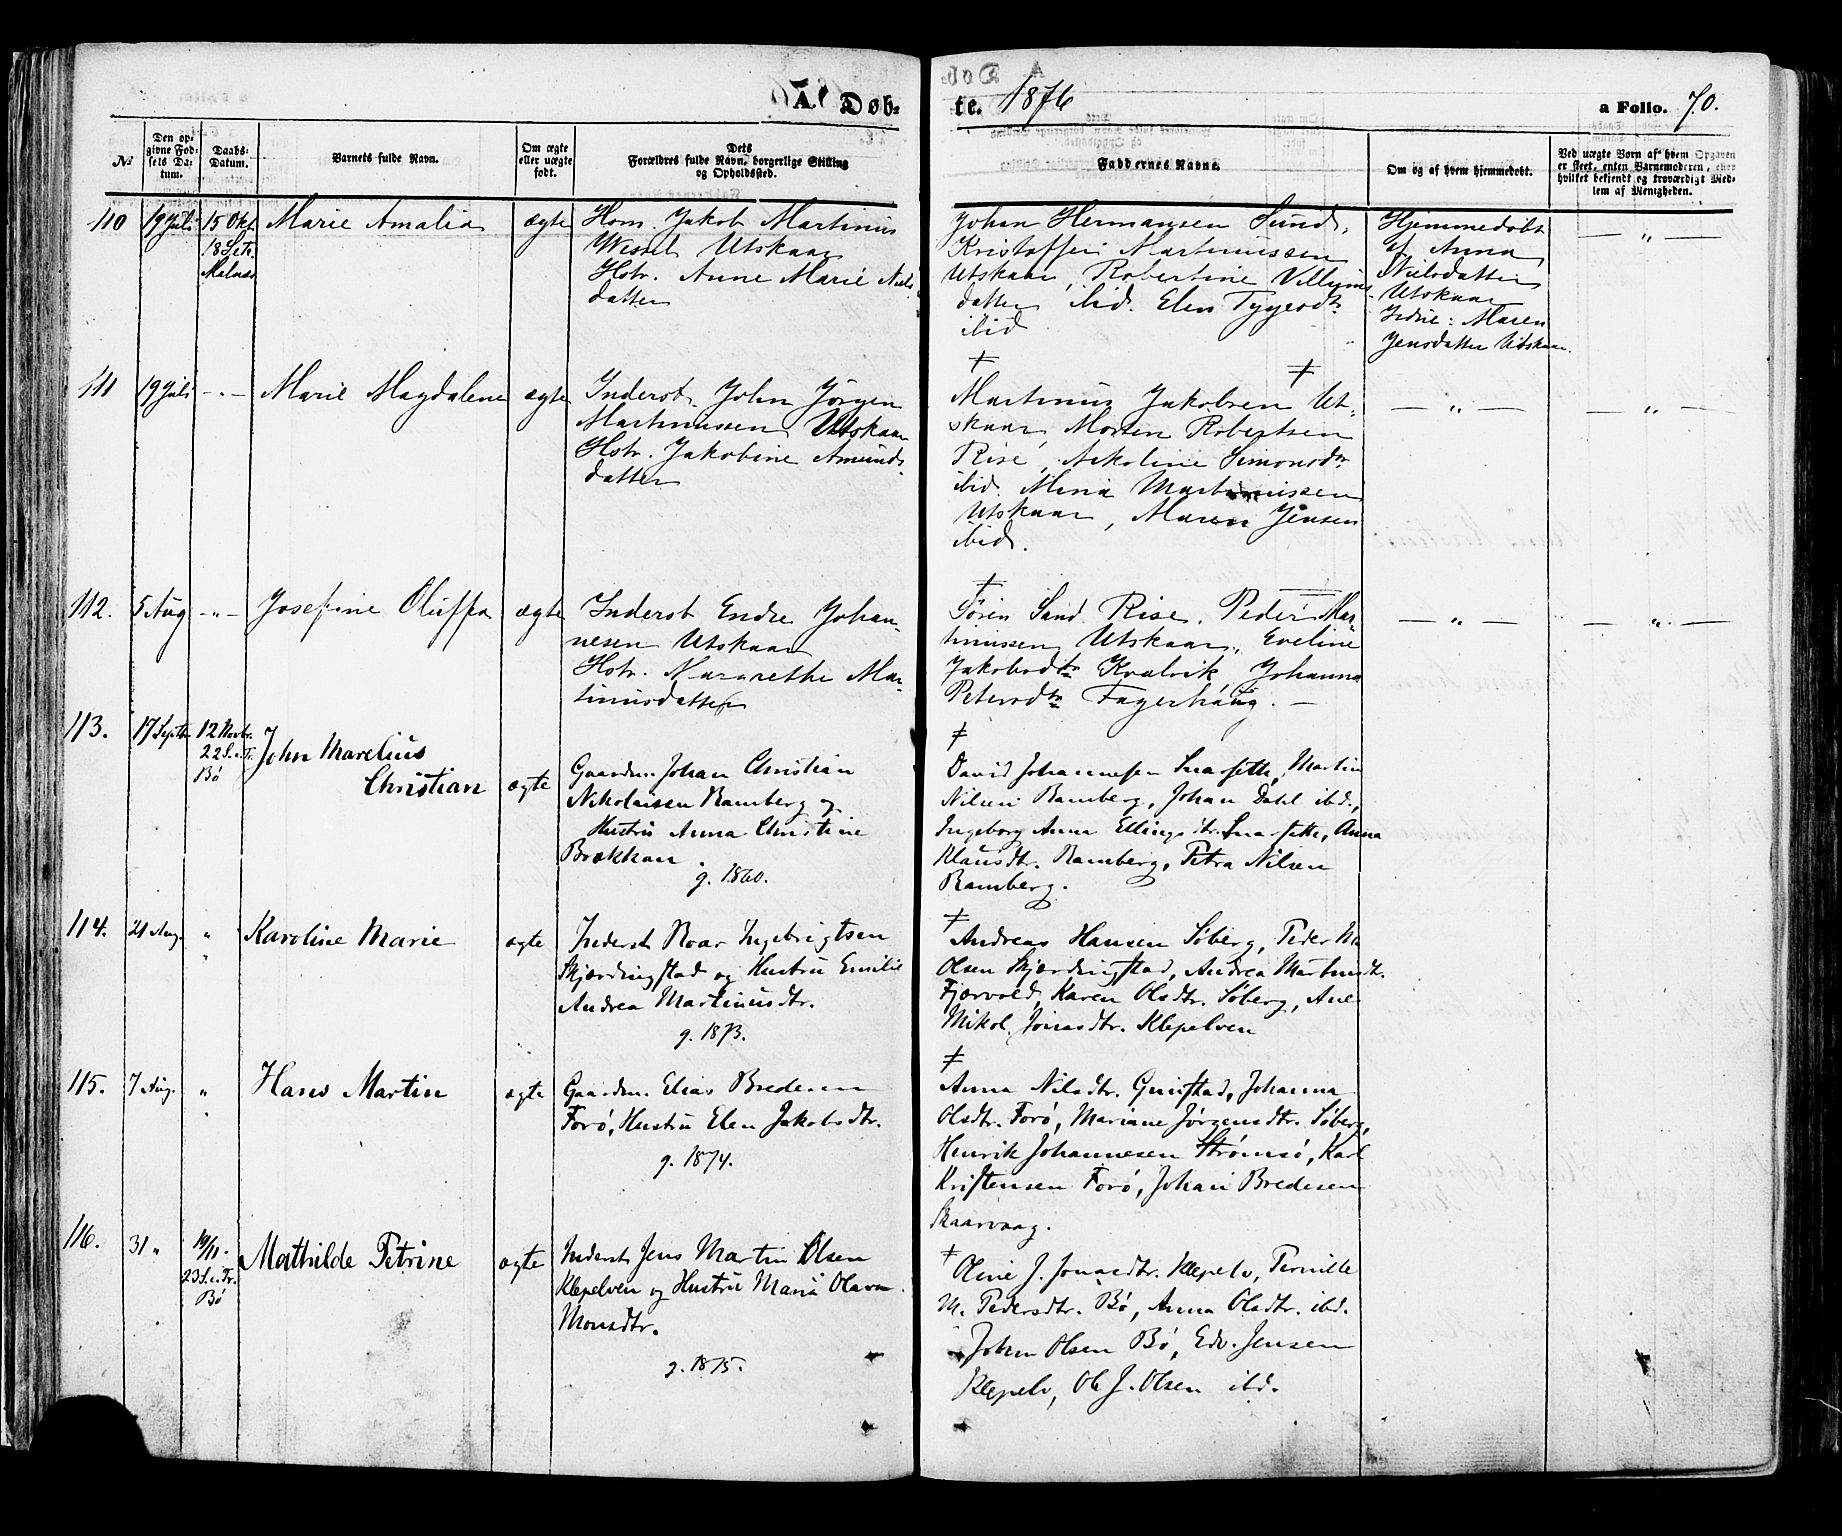 A. Døb-
te. 1876
a Folio. 70.
№
Den op-
givne Fød-
sels Da-
tum.
Daabs-
Datum.
Barnets fulde Navn.
Om ægte
eller uægte
født.
Dets
Forældres fulde Navn, borgerlige Stilling
og Opholdssted.
Faddernes Navne.
Om og af hvem hjemmedøbt.
Ved uægte Børn af hvem Opgaven
er skeet, enten Barnemoderen, eller
hvilket bekjendt og troværdigt Med-
lem af Menigheden.
110
19 Juli
15 Okt
18 S.e.Tr.
Melnæs
Marie Amalia
ægte
Hom. Jakob Martinus
Wessel Utskaar
Hstr. Anne Marie Niels
datter
Johan Hermansen Sund,
Kristoffer Martinussen
Utskaar, Robertine Villums
datter ibid. Elen Tygesdt
ibid
Hjemmedøbt
af Anna
Nielsdatter
Utskaar
Maren
Jensdatter Utskaar.
— „ —
111
19 Juli
- „ -
Marie Magdalene
ægte
Inderst. John Jørgen
Martinussen Utskaar
Hstr. Jakobine Amunds
datter
≠ ≠
Martinus Jakobsen Ut-
skaar, Morten Robertsen
Rise, Nikoline Simonsdtr
ibid. Mina Martinussen
Utskaar, Maren Jensen
ibid.
— „ —
— „ —
112.
5 Aug
- „ -
Josefine Oluffa
ægte
Inderst Endre Johan-
nesen Utskaar
Hstr. Margrethe Mar-
tinusdatter
≠
Søren Sand Rise, Peder Mar
tinussen Utskaar, Eveline
Jakobsdtr Kvalvik, Johanna
Petersdtr Fagerhaug. —
— „ —
— „ —
113.
17 Septb.
12 Novbr.
22 S.e.Tr.
Bø
John Marelius
Christian
ægte
Gaardm. Johan Christian
Nikolaisen Ramberg og
Hustru Anna Christine
Brækkan.
g. 1860.
≠
David Johannesen Snarseth, Martin
Nilsen Ramberg, Johan Dahl ibd.,
Ingeborg Anna Ellingsdtr. Snarseth, Anna
Klausdtr. Ramberg, Petra Nilsen
Ramberg.
114.
21 Aug.
„
Karoline Marie
ægte
Inderst Roar Ingebrigtsen
Skjærdingstad og Hustru Emilie
Andrea Martinusdtr.
g. 1873.
≠
Andreas Hansen Søberg, Peder
Olsen Skjærdingstad, Andrea Martinsdtr.
Fjærvold, Karen Olsdtr. Søberg, Ane
Nikol. Jonasdtr. Klepelven
115.
7 Aug.
„
Hans Martin
ægte
Gaardm. Elias Bredesen
Forø, Hustru Elen Jakobsdtr.
g. 1874.
≠
Anna Nilsdtr. Grinstad, Johanna
Olsdtr. Forø, Mariane Jørgensdtr. Søberg,
Henrik Johannesen Strømsø, Karl
Kristensen Forø, Johan Bredesen
Skaarvaag.
116.
31 „
19/11.
23 S.e.Tr.
Bø
Mathilde Petrine
ægte
Inderst Jens Martin Olsen
Klepelven og Hustru Maria Olava
Monsdtr.
g. 1875.
≠
Oline J. Jonasdtr. Klepelv, Pernille
M. Pedersdtr. Bø, Anna Olsdtr. ibd.
Johan Olsen Bø, Edv. Jensen
Klepelv, Ole J. Olsen ibd.